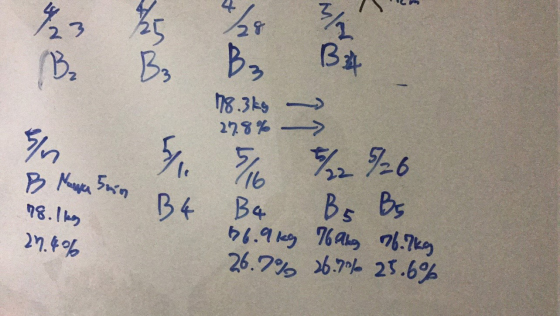 4/23 4/25 4/28 5/1
B2 B3 B3
78.3kg →
27.8% →
5/7 5/16 5/22 5/26
B 5min B4 B4 B5 B5
78.1kg 76.9kg 769kg 76.7kg
27.4% 26.7% 26.7% 25.6%